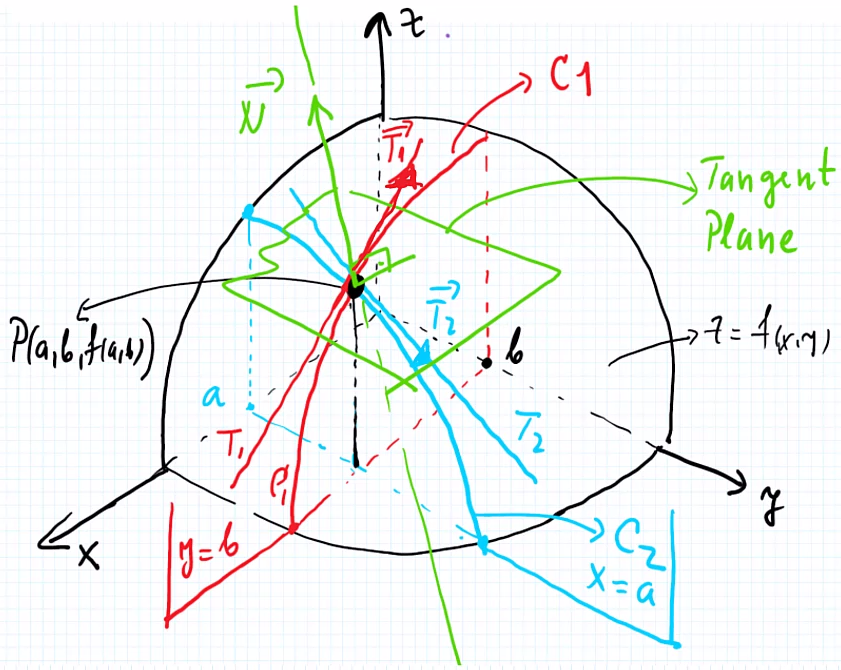 z
C1
N
T₁
Tangent
Plane
T₂
P(a,b,f(a,b))
b
z = f(x,y)
a
T₁
T₂
P₁
y
x
y=b
C₂
x=a